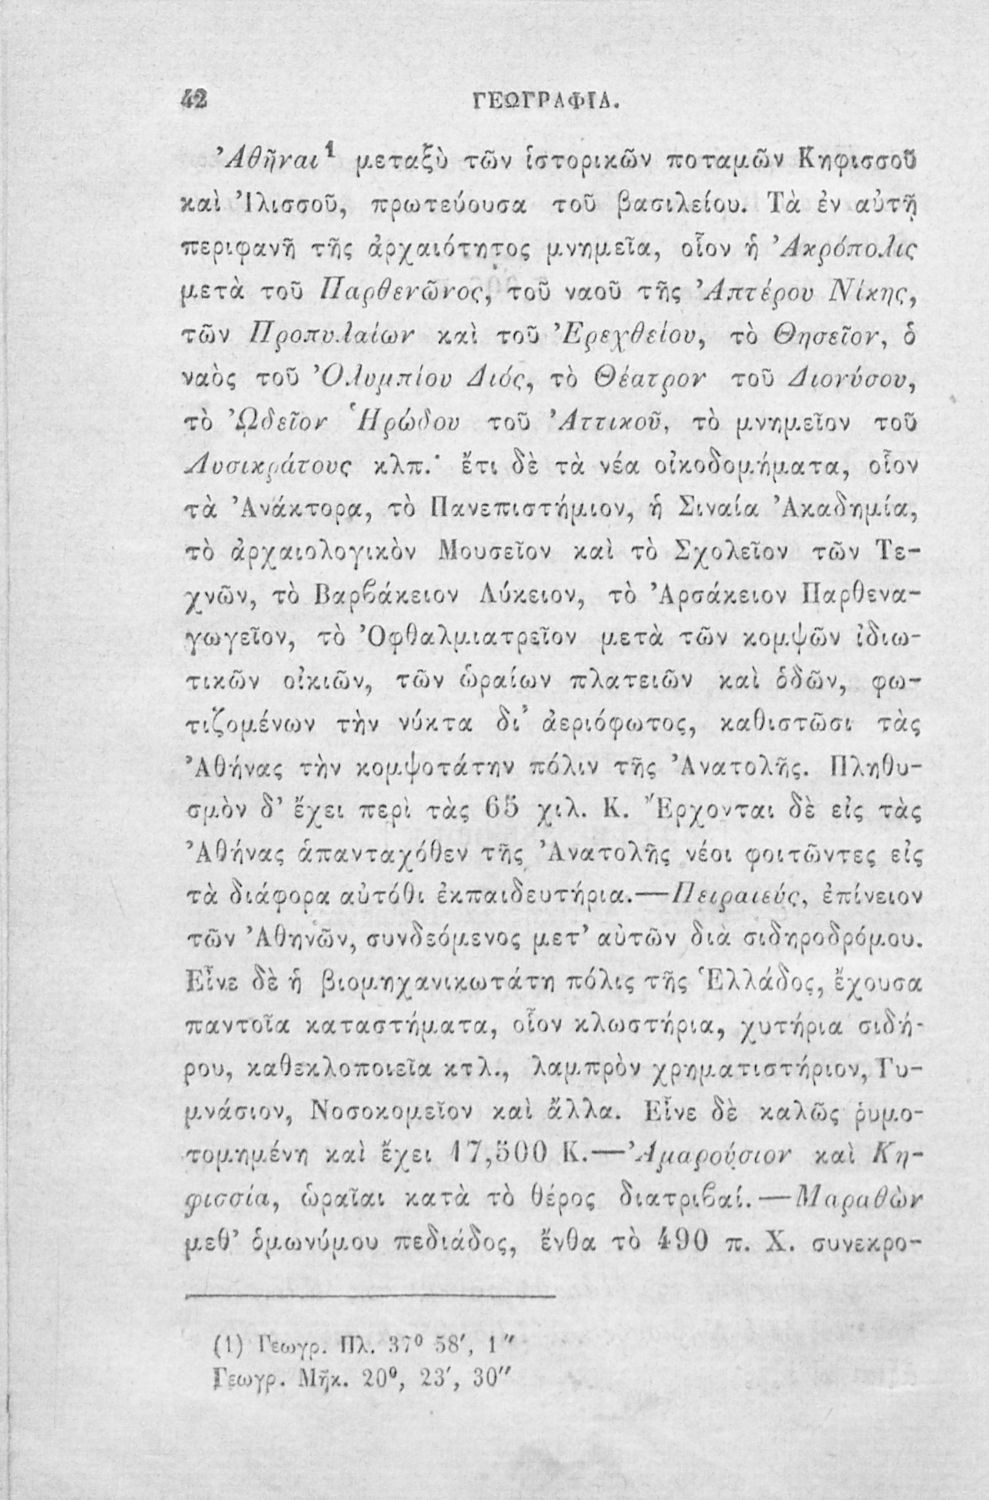 42 ΓΕΩΓΡΑΦΙΑ.
Ἀθῆναι¹ μεταξὺ τῶν ἱστορικῶν ποταμῶν Κηφισσοῦ
καὶ Ἰλισσοῦ, πρωτεύουσα τοῦ βασιλείου. Τὰ ἐν αὐτῇ
περιφανῆ τῆς ἀρχαιότητος μνημεῖα, οἷον ἡ Ἀκρόπολις
μετὰ τοῦ Παρθενῶνος, τοῦ ναοῦ τῆς Ἀπτέρου Νίκης,
τῶν Προπυλαίων καὶ τοῦ Ἐρεχθείου, τὸ Θησεῖον, ὁ
ναὸς τοῦ Ὀλυμπίου Διός, τὸ Θέατρον τοῦ Διονύσου,
τὸ ᾨδεῖον Ἡρώδου τοῦ Ἀττικοῦ, τὸ μνημεῖον τοῦ
Λυσικράτους κλπ.· ἔτι δὲ τὰ νέα οἰκοδομήματα, οἷον
τὰ Ἀνάκτορα, τὸ Πανεπιστήμιον, ἡ Σιναία Ἀκαδημία,
τὸ ἀρχαιολογικὸν Μουσεῖον καὶ τὸ Σχολεῖον τῶν Τε-
χνῶν, τὸ Βαρβάκειον Λύκειον, τὸ Ἀρσάκειον Παρθενα-
γωγεῖον, τὸ Ὀφθαλμιατρεῖον μετὰ τῶν κομψῶν ἰδιω-
τικῶν οἰκιῶν, τῶν ὡραίων πλατειῶν καὶ ὁδῶν, φω-
τιζομένων τὴν νύκτα δι᾽ ἀεριόφωτος, καθιστῶσι τὰς
Ἀθήνας τὴν κομψοτάτην πόλιν τῆς Ἀνατολῆς. Πληθυ-
σμὸν δ᾽ ἔχει περὶ τὰς 65 χιλ. Κ. Ἔρχονται δὲ εἰς τὰς
Ἀθήνας ἁπανταχόθεν τῆς Ἀνατολῆς νέοι φοιτῶντες εἰς
τὰ διάφορα αὐτόθι ἐκπαιδευτήρια.—Πειραιεύς, ἐπίνειον
τῶν Ἀθηνῶν, συνδεόμενος μετ᾽ αὐτῶν διὰ σιδηροδρόμου.
Εἶνε δὲ ἡ βιομηχανικωτάτη πόλις τῆς Ἑλλάδος, ἔχουσα
παντοῖα καταστήματα, οἷον κλωστήρια, χυτήρια σιδή-
ρου, καθεκλοποιεῖα κτλ., λαμπρὸν χρηματιστήριον, Γυ-
μνάσιον, Νοσοκομεῖον καὶ ἄλλα. Εἶνε δὲ καλῶς ῥυμο-
τομημένη καὶ ἔχει 17,500 Κ.—Ἀμαρούσιον καὶ Κη-
φισσία, ὡραῖαι κατὰ τὸ θέρος διατριβαί.—Μαραθὼν
μεθ᾽ ὁμωνύμου πεδιάδος, ἔνθα τὸ 490 π. Χ. συνεκρο-
(1) Γεωγρ. Πλ. 37° 58′, 1″
Γεωγρ. Μῆκ. 20°, 23′, 30″